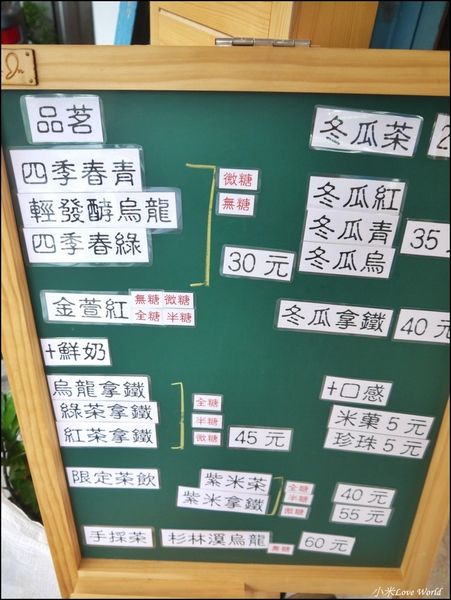 On
品茗
四季春青
輕發酵烏龍
四季春綠
微糖
無糖
30 元
金萱紅
無糖 微糖
全糖 半糖
+鮮奶
烏龍拿鐵
綠茶拿鐵
紅茶拿鐵
全糖
半糖
微糖
45 元
限定茶飲
紫米茶
紫米拿鐵
全糖
半糖
微糖
40 元
55 元
手採茶
杉林溪烏龍
無糖
60 元
冬瓜茶
2
冬瓜紅
冬瓜青
冬瓜烏
35
冬瓜拿鐵
40 元
+口感
米菓 5 元
珍珠 5 元
小米Love World